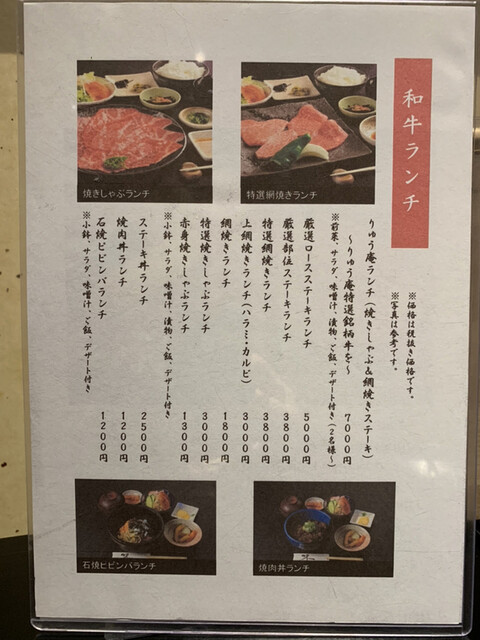 和牛ランチ
※価格は税抜き価格です。
※写真は参考です。
りゅう庵ランチ(焼きしゃぶ&網焼きステーキ)
～りゅう庵特選銘柄牛を～ 7000円
※前菜、サラダ、味噌汁、ご飯、デザート付き(2名様～)
厳選ロースステーキランチ 5000円
厳選部位ステーキランチ 3800円
特選網焼きランチ 3800円
上網焼きランチ(ハラミ・カルビ) 3000円
網焼きランチ 1800円
特選焼きしゃぶランチ 3000円
赤身焼きしゃぶランチ 1300円
※小鉢、サラダ、味噌汁、漬物、ご飯、デザート付き
ステーキ丼ランチ 2500円
焼肉丼ランチ 1200円
石焼ビビンバランチ 1200円
※小鉢、サラダ、味噌汁、ご飯、デザート付き
焼きしゃぶランチ
特選網焼きランチ
石焼ビビンバランチ
焼肉丼ランチ